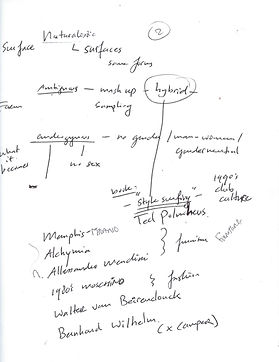 2
Surface Naturalistic
↳ surfaces
same forms
Ambiguous — mash up — hybrid
Form Sampling
androgynous — no gender / man-woman /
gender neutral
what it became no sex
book: 1990's
"style surfing" club
Ted Polhemus. culture
Memphis - Milano
Alchymia } furniture
Allessandro Mendini
1980s moschino } fashion
Walter van Beirendonck
Bernhard Wilhelm. (x camper)